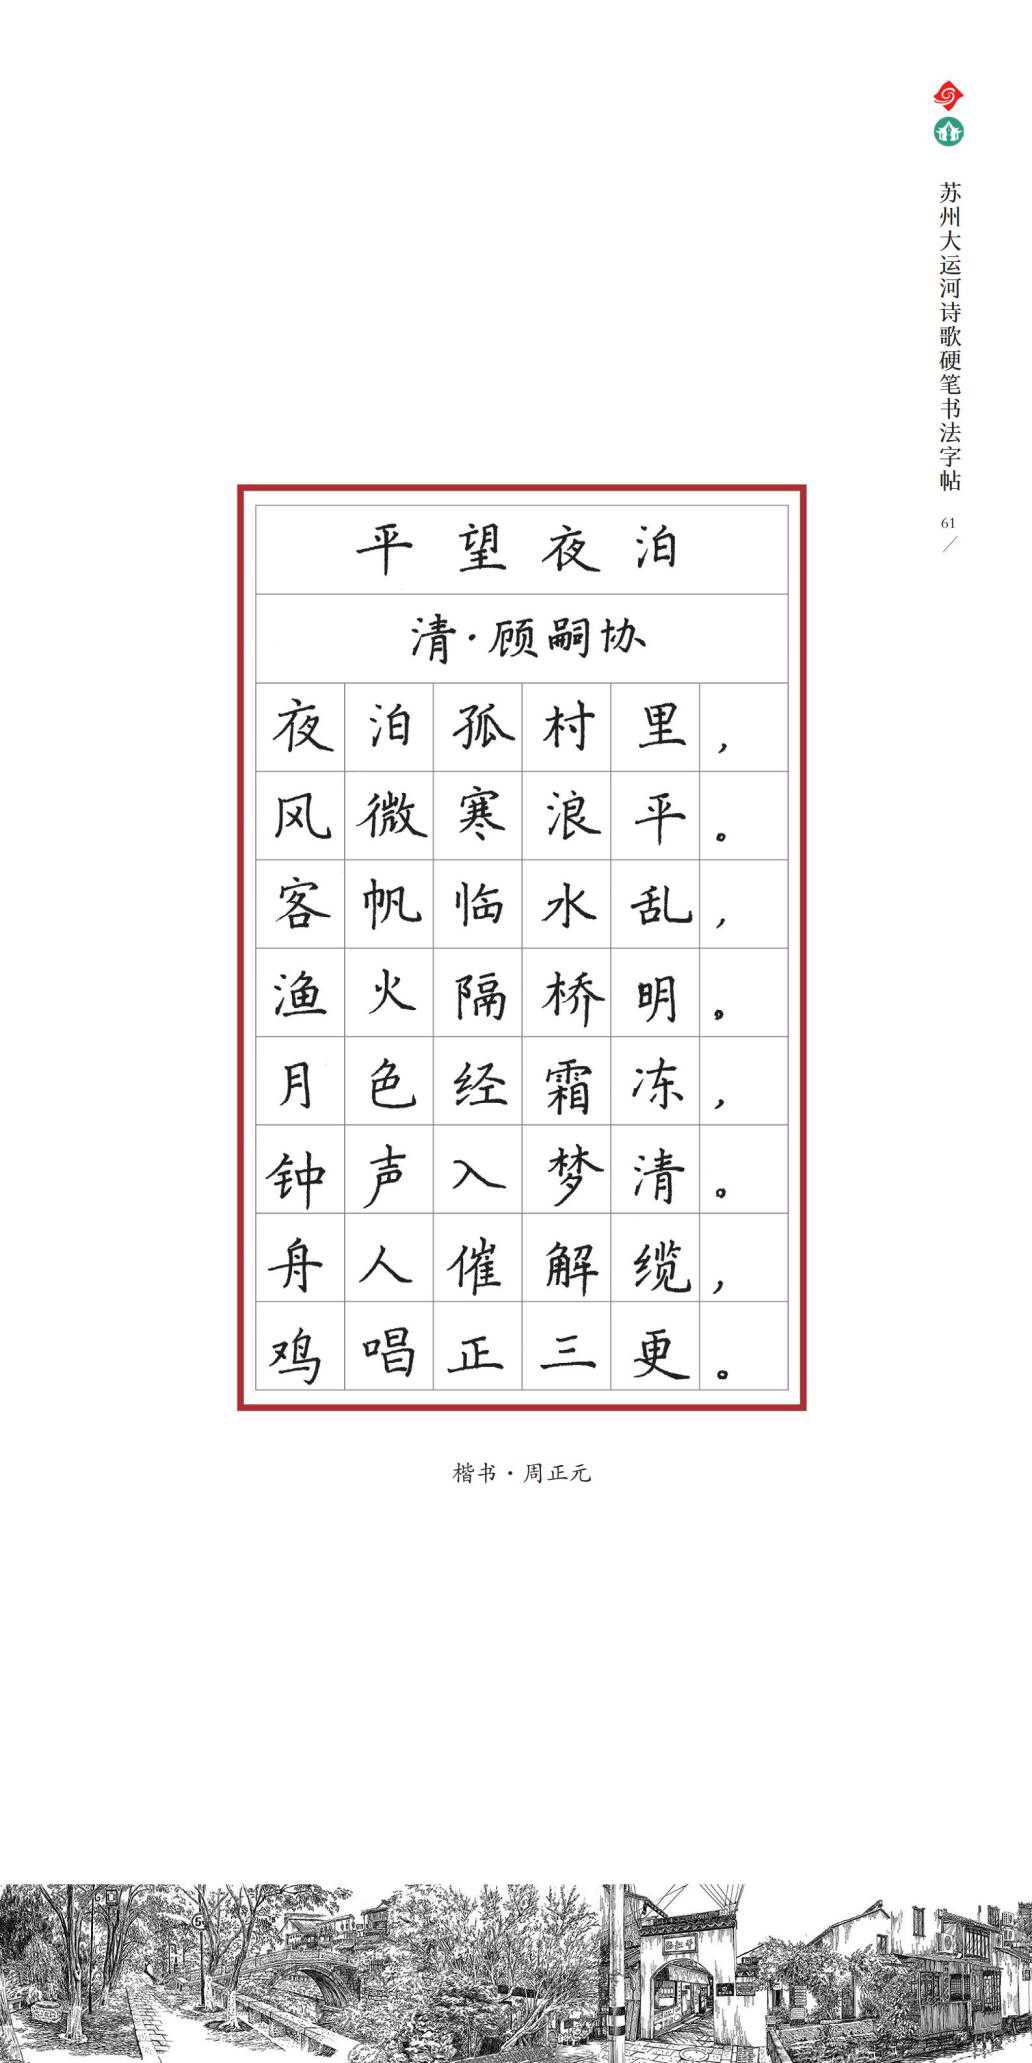 苏州大运河诗歌硬笔书法字帖
61
平望夜泊
清·顾嗣协
夜泊孤村里，
风微寒浪平。
客帆临水乱，
渔火隔桥明。
月色经霜冻，
钟声入梦清。
舟人催解缆，
鸡唱正三更。
楷书·周正元